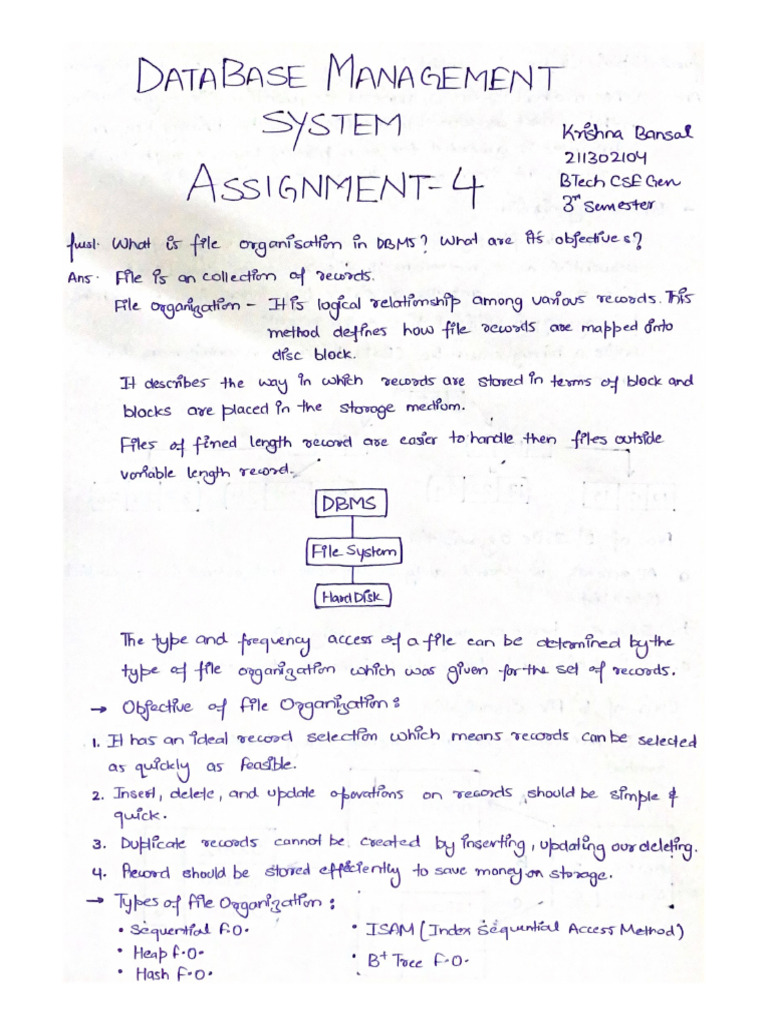 DATABASE MANAGEMENT
SYSTEM
ASSIGNMENT-4
Krishna Bansal
211302104
BTech CSE Gen
3rd Semester
Ques1. What is file organisation in DBMS? What are its objectives?
Ans. File is an collection of records.
File organization - It is logical relationship among various records. This
method defines how file records are mapped into
disc block.
It describes the way in which records are stored in terms of block and
blocks are placed in the storage medium.
Files of fined length record are easier to handle then files outside
variable length record.
DBMS
File System
Hard Disk
The type and frequency access of a file can be determined by the
type of file organization which was given for the set of records.
→ Objective of file Organization:
1. It has an ideal record selection which means records can be selected
as quickly as feasible.
2. Insert, delete, and update operations on records should be simple &
quick.
3. Duplicate records cannot be created by inserting, updating our deleting.
4. Record should be stored efficiently to save money on storage.
→ Types of file Organization:
• Sequential f.O.
• Heap f.O.
• Hash f.O.
• ISAM (Index Sequential Access Method)
• B+ Tree f.O.